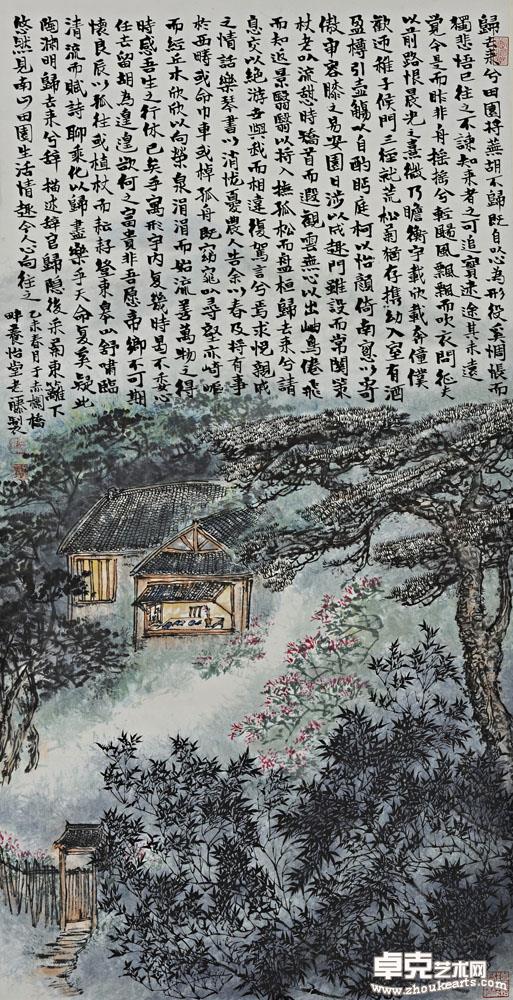 歸去來兮田園將蕪胡不歸既自以心為形役奚惆悵而
獨悲悟已往之不諫知來者之可追實迷途其未遠
覺今是而昨非舟搖搖兮輕颺風飄飄而吹衣問征夫
以前路恨晨光之熹微乃瞻衡宇載欣載奔僮僕
歡迎稚子候門三徑就荒松菊猶存携幼入室有酒
盈樽引壺觴以自酌眄庭柯以怡顏倚南窗以寄
傲審容膝之易安園日涉以成趣門雖設而常關策
杖老以流憩時矯首而遐觀雲無心以出岫鳥倦飛
而知返景翳翳以將入撫孤松而盤桓歸去來兮請
息交以絕游世與我而相違復駕言兮焉求悅親戚
之情話樂琴書以消憂農人告余以春及將有事
於西疇或命巾車或棹孤舟既窈窕以尋壑亦崎嶇
而經丘木欣欣以向榮泉涓涓而始流善萬物之得
時感吾生之行休已矣乎寓形宇內復幾時曷不委心
任去留胡為遑遑欲何之富貴非吾願帝鄉不可期
懷良辰以孤往或植杖而耘耔登東皋以舒嘯臨
清流而賦詩聊乘化以歸盡樂乎天命復奚疑此
陶淵明歸去來兮辭描述辭官歸隱後采菊東籬下
悠然見南山田園生活情趣令人心向往之 乙未春月于赤欄橋
畔養怡堂老滕製
卓克艺术网
www.zhoukearts.com